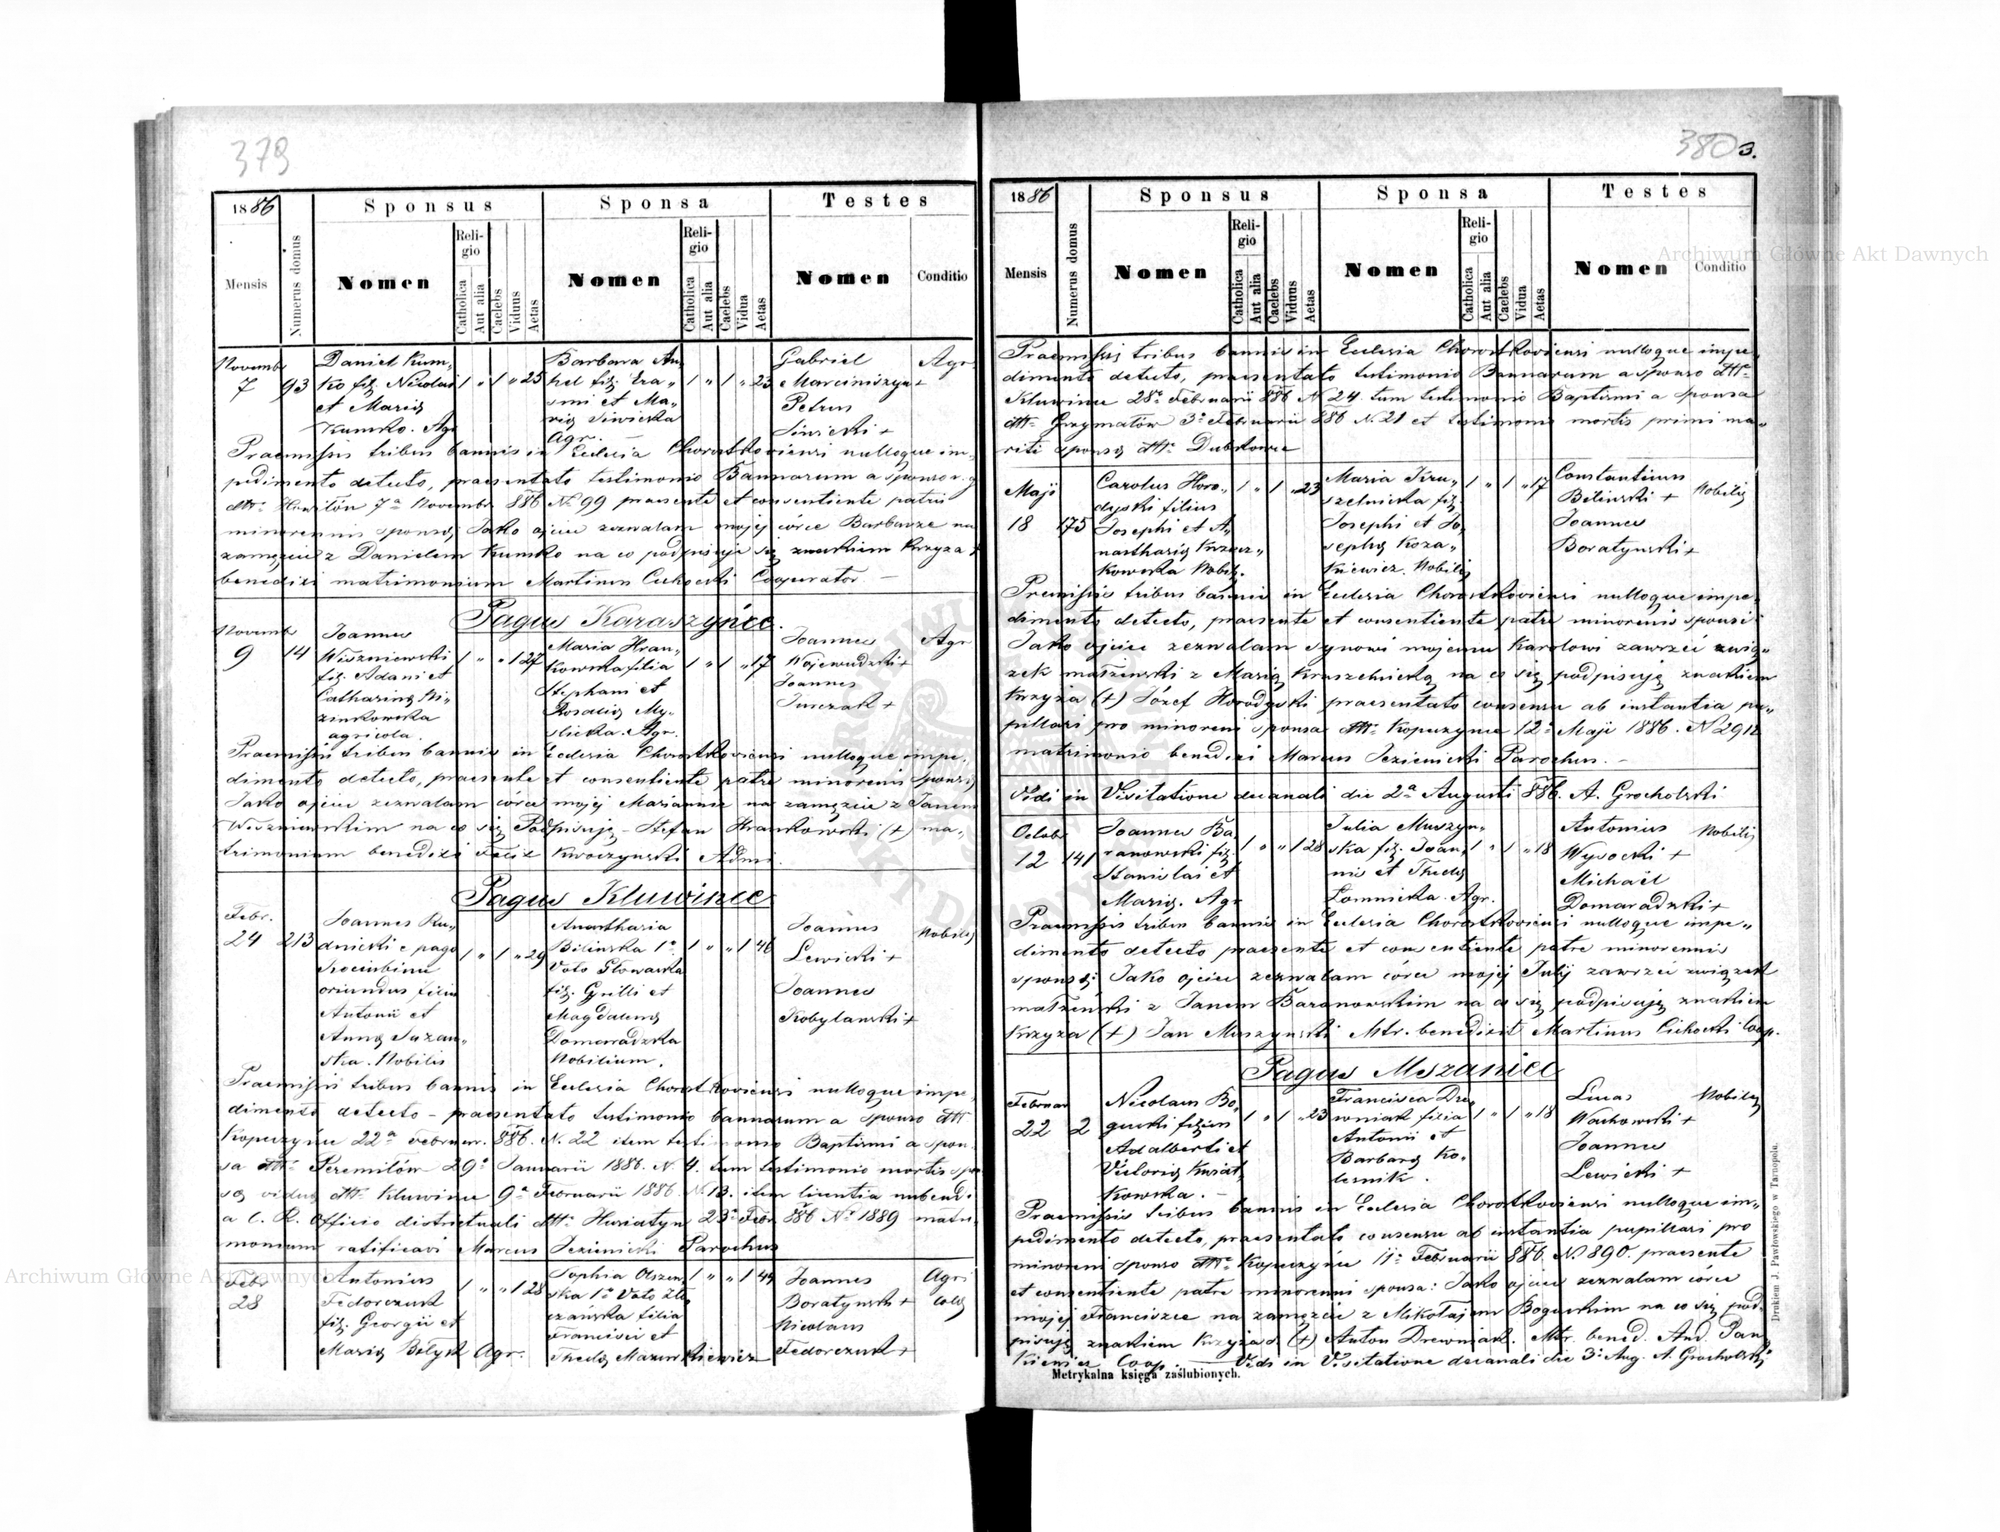 379
1886
Sponsus
Sponsa
Testes
Mensis
Numerus domus
Nomen
Religio
Catholica
Aut alia
Caelebs
Viduus
Aetas
Nomen
Religio
Catholica
Aut alia
Caelebs
Vidua
Aetas
Nomen
Conditio
Novemb 7
93
Daniel Kum-
ko fil. Nicolai
et Maria
Kumko. Agr
1 " 1 " 25
Barbara
fil. Era-
smi et Ma-
ria Siwicka
Agr.
1 " 1 " 23
Gabriel
Marciniszyn +
Petrus
Siwicki +
Agr
Praemissis tribus bannis in Ecclesia Chorostkoviensi nulloque im-
pedimento detecto, praesentato testimonio Bannorum a sponso
7a Novemb. 886 No 99 praesente et consentiente patre
minorennis sponsae Jako ojciec zezwalam mojej córce Barbarze na
zamęzcie z Danielem Kumko na co podpisuje się znakiem krzyża +
benedixi matrimonium Martinus Cichocki Cooperator
Pagus Karaszyńce.
Novemb 9
14
Joannes
Wiszniewski
fil. Adami et
Catharina Ni-
zinkowska
agricola.
1 " " 1 27
Maria Hran-
kowska filia
Stephani et
Rosalia My-
slicka Agr.
1 " 1 " 17
Joannes
Wojewudzki +
Joannes
Jurczak +
Agr
Praemissis tribus bannis in Ecclesia Chorostkoviensi nulloque impe-
dimento detecto, praesente et consentiente patre minorenis sponsae
Jako ojciec zezwalam córce mojej Mariannie na zamęzcie z Janem
Wiszniewskim na co się Podpisuję - Stefan Hrankowski (+) ma-
trimonium benedixi Felix Kwoczynski Admi.
Pagus Kluwince
Febr. 24
213
Joannes Ru-
dnicki e pago
Kociubince
oriundus filius
Antonii et
Anna Suzan-
ska. Nobilis
1 " 1 " 29
Anasthasia
Bilinska 1o
Voto Głowacka
fil. Grilli et
Magdalena
Domaradzka
Nobilium.
1 " " 1 46
Joannes
Lewicki +
Joannes
Kobylanski +
Nobiles
Praemissis tribus bannis in Ecclesia Chorostkoviensi nulloque impe-
dimento detecto - praesentato testimonio bannorum a sponso
Kopeczynce 22a Februar. 886. N. 22 item testimonio Baptismi a spon-
sa Peremilów 29a Januarii 1886. N. 4. tum testimonio mortis spo-
vidua Kluwince 9a Februarii 1886 N 13. item licentia nubendi
a C. R. Officio districtuali Husiatyn 23a Febr 886 No 1889 matri-
monium ratificavi Marcus Jezienicki Parochus
Febr 28
Antonius
Fedorczuk
fil. Georgii et
Maria Bełyk Agr.
1 " " 1 28
Sophia Olszew-
ska 1o Voto
filia
Francisci et
Thecla Mazurkiewicz
1 " " 1 44
Joannes
Boratynski +
Nicolaus
Fedorczuk +
Agri
cola
380 3.
1886
Sponsus
Sponsa
Testes
Mensis
Numerus domus
Nomen
Religio
Catholica
Aut alia
Caelebs
Viduus
Aetas
Nomen
Religio
Catholica
Aut alia
Caelebs
Vidua
Aetas
Nomen
Conditio
Praemissis tribus bannis in Ecclesia Chorostkoviensi nulloque impe-
dimento detecto, praesentato testimonio Bannorum a sponso
Kluwince 28a Februarii 886 N 24. tum testimonio Baptismi a sponsa
Grzymałów 3a Februarii 886 N. 21 et testimonio mortis primi ma-
riti sponsa Dubkowce
Maji 18
175
Carolus Horo-
dyski filius
Josephi et A-
nasthasia Krzecz-
kowska Nobil.
1 " 1 " 23
Maria Kru-
szelnicka fil.
Josephi et Jo-
sepha Koza-
kiewicz. Nobilis
1 " 1 " 17
Constantinus
Bilinski +
Joannes
Boratynski +
Nobiles
Premissis tribus bannis in Ecclesia Chorostkoviensi nulloque impe-
dimento detecto, praesente et consentiente patre minorenis sponsi
Jako ojciec zezwalam synowi mojemu Karolowi zawrzeć zwią-
zek małżeński z Marią Kruszelnicką na co się podpisuję znakiem
krzyża (+) Józef Horodyski praesentato consensu ab instantia pu-
pillari pro minoreni sponsa Kopeczynce 12a Maji 1886. N 2912
matrimonio benedixi Marcus Jezienicki Parochus. -
Vidi in Visitatione decanali die 2a Augusti 886. A. Grocholski
Octob 12
141
Joannes Ba-
ranowski fil.
Stanislai et
Maria. Agr
1 " " 1 28
Julia Muszyn-
ska fil. Joan-
nis et Thecla
Łomnicka. Agr.
1 " 1 " 18
Antonius
Wysocki +
Michaël
Domaradzki +
Nobiles
Praemissis tribus bannis in Ecclesia Chorostkoviensi nulloque impe-
dimento detecto praesente et consentiente patre minorennis
sponsae: Jako ojciec zezwalam córce mojej Julij zawrzeć związek
małżeński z Janem Baranowskim na co się podpisuję znakiem
krzyża (+) Jan Muszynski Mtr. benedixit Martinus Cichocki Coop.
Pagus Mszaniec
Februar 22
2
Nicolaus Bo-
gucki filius
Adalberti et
Victoria Kwiat-
kowska. -
1 " 1 " 23
Francisca Dre-
wniak filia
Antonii et
Barbara Ko-
lesnik.
1 " 1 " 18
Lucas
Wachowski +
Joannes
Lewicki +
Nobiles
Praemissis tribus bannis in Ecclesia Chorostkoviensi nulloque im-
pedimento detecto, praesentato consensu ab instantia pupillari pro
minoreni sponso Kopeczynce 11a Februarii 886. No 890. praesente
et consentiente patre minorenni sponsa: Jako ojciec zezwalam córce
mojej Franciszce na zamęzcie z Mikołajem Boguckim na co się pod-
pisuję znakiem krzyża (+) Anton Drewniak. Mtr. bened. And. Pan-
kiewicz Coop. - Vidi in Visitatione decanali die 3a Aug. A. Grocholski
Metrykalna księga zaślubionych.
Drukiem J. Pawłowskiego w Tarnopolu.
Archiwum Główne Akt Dawnych
Archiwum Główne Akt Dawnych
ARCHIWUM
AKT DAWNYCH